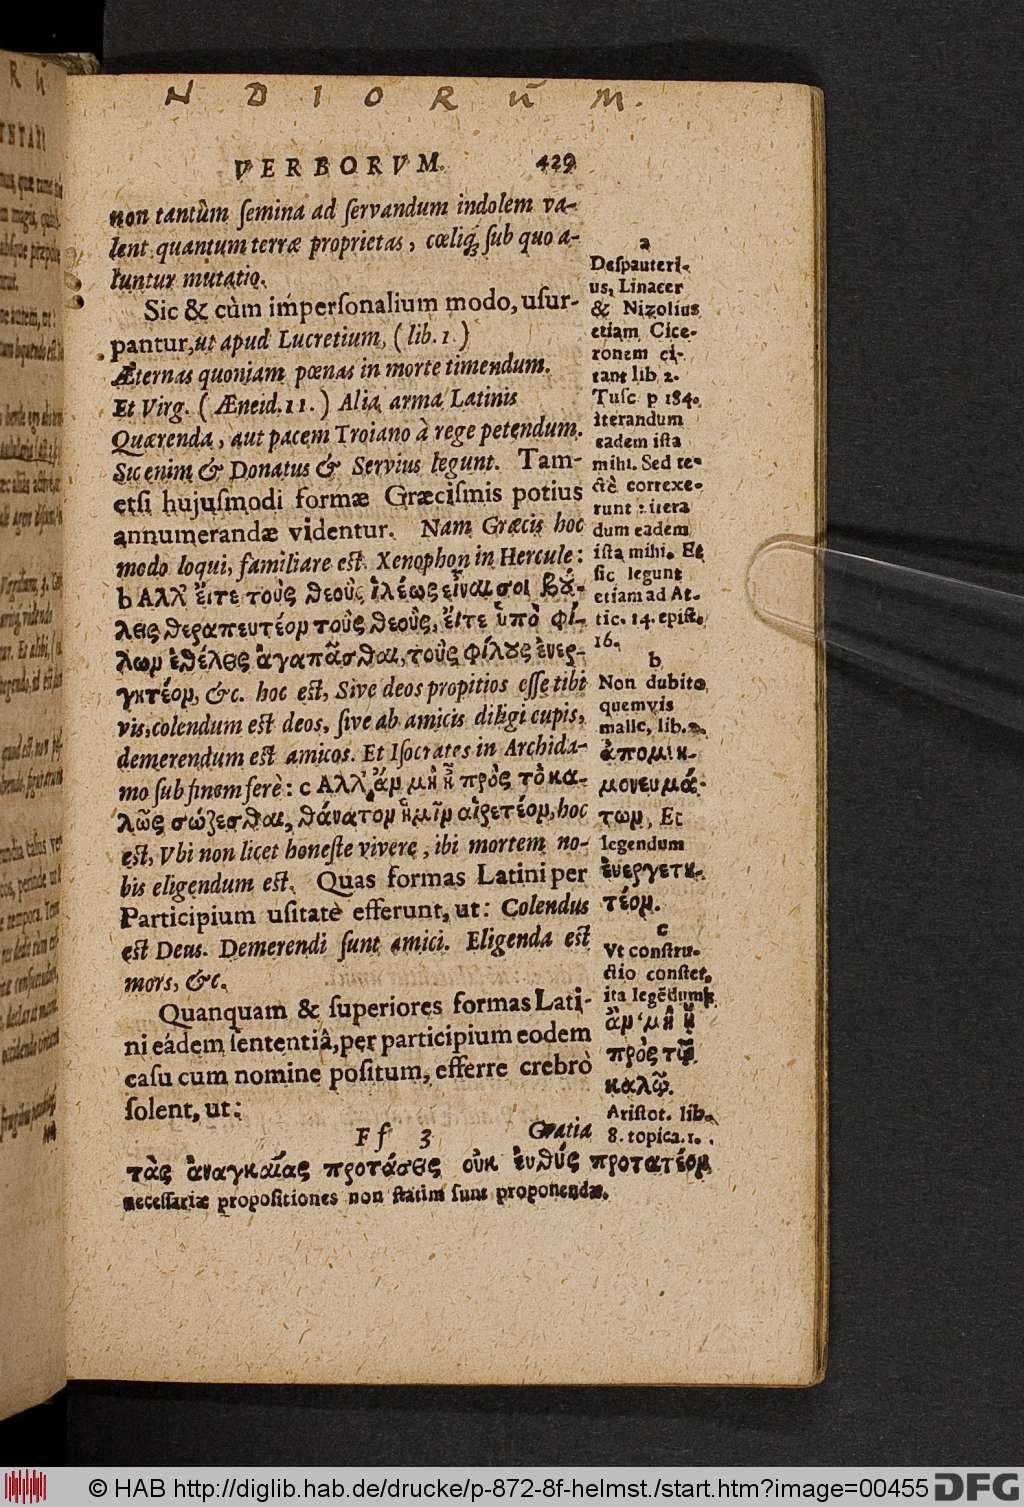 N D I O R ū M.
VERBORVM. 429
non tantùm ſemina ad ſervandum indolem va-
lent quantum terræ proprietas, cœliq́; ſub quo a-
luntur mutatio.
Sic & cùm impersonalium modo, uſur-
pantur, ut apud Lucretium, (lib. 1.)
Æternas quoniam pœnas in morte timendum.
Et Virg. (Æneid. 11.) Alia arma Latinis
Quærenda, aut pacem Troiano à rege petendum.
Sic enim & Donatus & Servius legunt. Tam-
etſi hujuſmodi formæ Græciſmis potius
annumerandæ videntur. Nam Græcis hoc
modo loqui, familiare eſt. Xenophon in Hercule:
b Αλλ' ἔιτε τοὺς θεοὺς ἱλέως εἶναι σοι βού-
λεις θεραπευτέον τοὺς θεοὺς, ἔιτε ὑπὸ φί-
λων ἐθέλεις ἀγαπᾶσθαι, τοὺς φίλους ἐυερ-
γητέον, &c. hoc eſt, Sive deos propitios eſſe tibi
vis, colendum eſt deos, ſive ab amicis diligi cupis,
demerendum eſt amicos. Et Iſocrates in Archida-
mo ſub finem ferè: c Αλλ' ἄν μὴ ᾖ πρὸς τὸ κα-
λῶς σώζεσθαι, θάνατον ἡμῖν αἱρετέον, hoc
eſt, Vbi non licet honeſte vivere, ibi mortem no-
bis eligendum eſt. Quas formas Latini per
Participium uſitatè efferunt, ut: Colendus
eſt Deus. Demerendi ſunt amici. Eligenda eſt
mors, &c.
Quanquam & ſuperiores formas Lati-
ni eádem ſententiâ, per participium eodem
caſu cum nomine poſitum, efferre crebrò
ſolent, ut:
Ff 3 Gratia
a
Deſpauteri-
us, Linacer
& Nizolius
etiam Cice-
ronem ci-
tant lib. 2.
Tuſc. p 184.
iterandum
eadem iſta
mihi. Sed re-
ctè correxe-
runt: itera
dum eadem
iſta mihi. Et
ſic legunt
etiam ad At-
tic. 14. epiſt.
16.
b
Non dubito
quemvis
malle, lib. 2.
ἀπομνη-
μονευμά-
των, Et
legendum
ἐυεργετη-
τέον.
c
Vt conſtru-
ctio conſtet,
ita legēdum
ἂν μὴ ᾖ
πρὸς τῷ
καλῷ.
Ariſtot. lib.
8. topica. 1.
τὰς ἀναγκαίας προτάσεις οὐκ ἐυθύς προτατέον
neceſſariæ propoſitiones non ſtatim ſunt proponendæ.
© HAB http://diglib.hab.de/drucke/p-872-8f-helmst./start.htm?image=00455 DFG